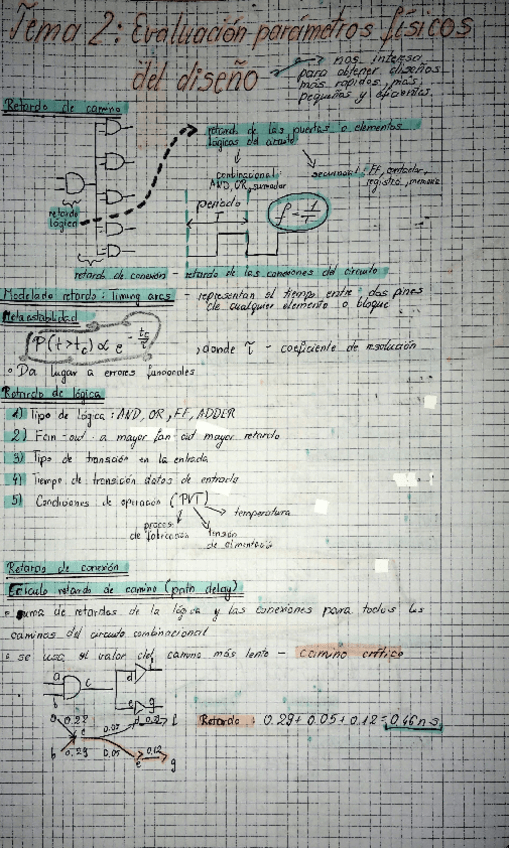 Tema 2: Evaluación parámetros físicos
del diseño
nos interesa
para obtener diseños
más rapidos, mas
pequeñas y eficientes.
Retardo de camino
retardo de las puertas o elementos
lógicos del circuito
combinacional:
AND, OR, sumador
secuencial: FF, contador,
registro, memoria
retardo
lógica
periodo
T
f = 1/T
retardo de conexión - retardo de las conexiones del circuito
Modelado retardo: timing arcs - representan el tiempo entre dos pines
de cualquier elemento o bloque
Metaestabilidad
P(t>tc) ∝ e^(-tc/τ) , donde τ - coeficiente de resolución
• Da lugar a errores funcionales
Retardo de lógica
1) Tipo de lógica: AND, OR, FF, ADDER
2) Fan-out - a mayor fan-out mayor retardo
3) Tipo de transición en la entrada
4) Tiempo de transición datos de entrada
5) Condiciones de operación (PVT)
temperatura
proceso
de fabricación
tensión
de alimentación
Retardo de conexión
Cálculo retardo de camino (path delay)
• suma de retardos de la lógica y las conexiones para todos los
caminos del circuito combinacional
• se usa el valor del camino más lento - camino crítico
a
c
b
d
f
e
g
a 0.22
c
0.07
d
f
b 0.29
0.05
e
0.12
g
Retardo: 0.29 + 0.05 + 0.12 = 0.46 ns